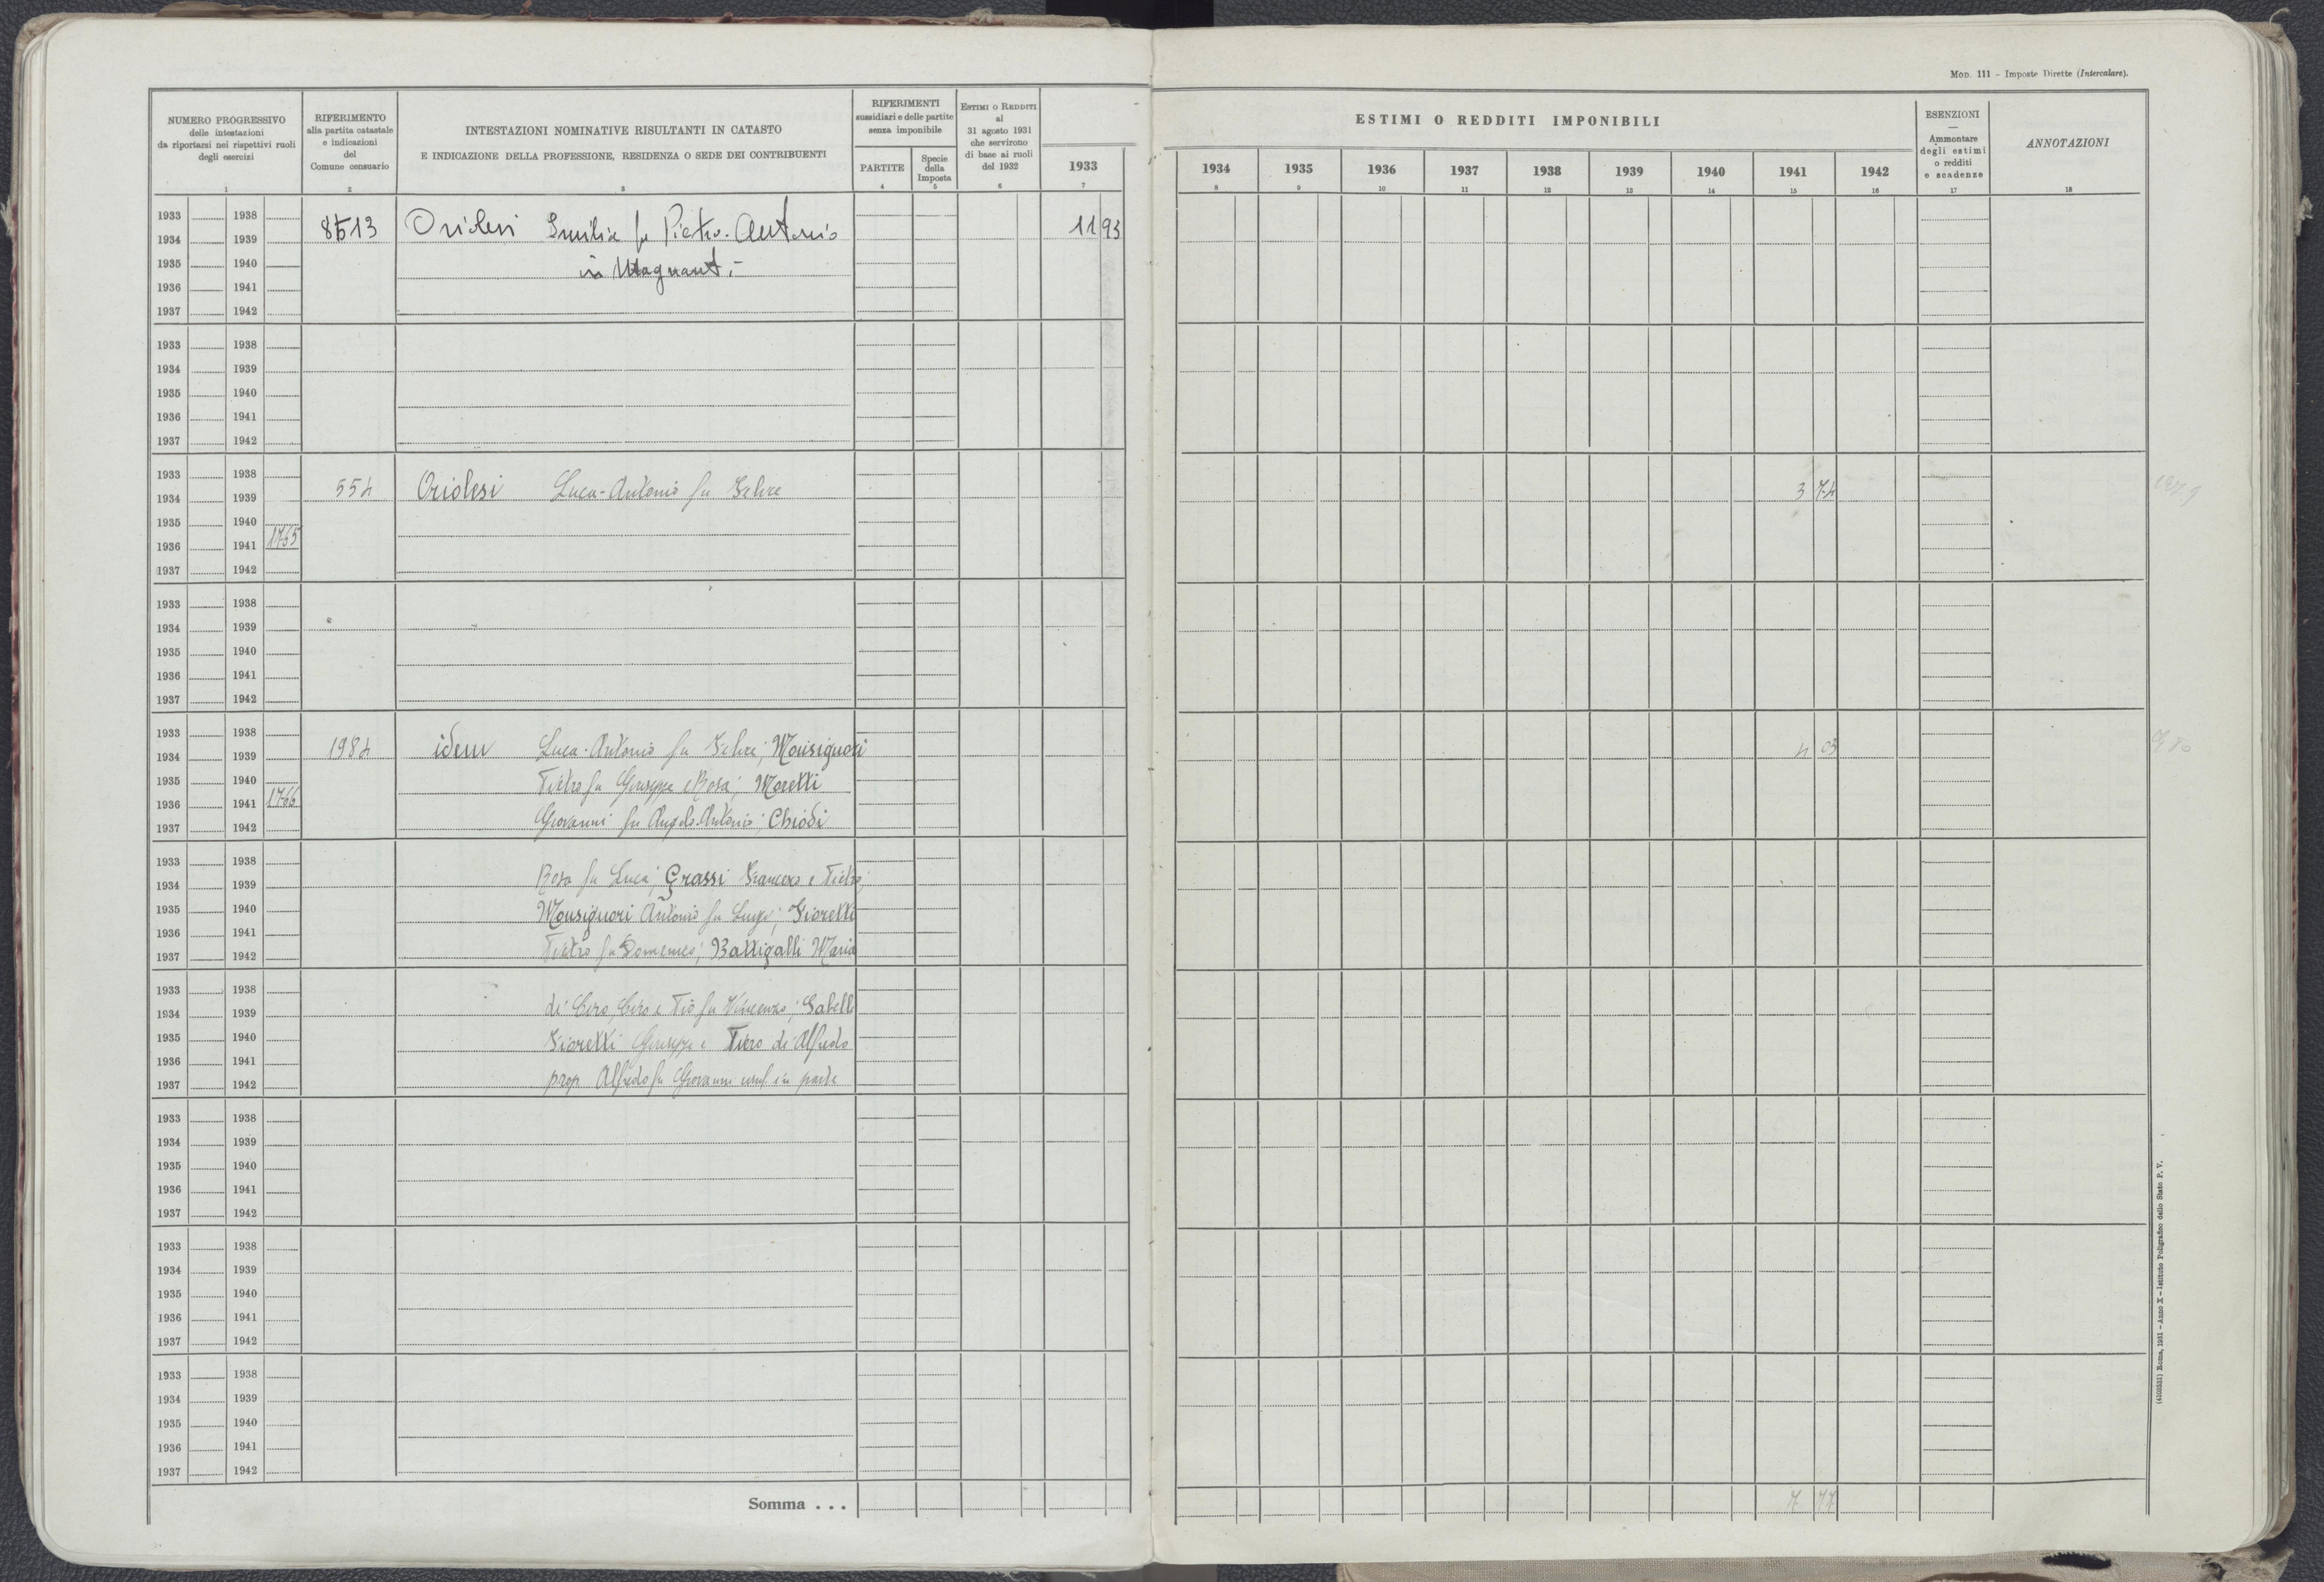 Mod. 111 – Imposte Dirette (Intercalare).
NUMERO PROGRESSIVO
delle intestazioni
da riportarsi nei rispettivi ruoli
degli esercizi
1
RIFERIMENTO
alla partita catastale
e indicazioni
del
Comune censuario
2
INTESTAZIONI NOMINATIVE RISULTANTI IN CATASTO
E INDICAZIONE DELLA PROFESSIONE, RESIDENZA O SEDE DEI CONTRIBUENTI
3
RIFERIMENTI
sussidiari e delle partite
senza imponibile
PARTITE
4
Specie
della
Imposta
5
Estimi o Redditi
al
31 agosto 1931
che servirono
di base ai ruoli
del 1932
6
1933
7
ESTIMI O REDDITI IMPONIBILI
1934 1935 1936 1937 1938 1939 1940 1941 1942
8 9 10 11 12 13 14 15 16
ESENZIONI
—
Ammontare
degli estimi
o redditi
e scadenze
17
ANNOTAZIONI
18
1933 1938
8513 Oriolesi Emilia fu Pietro-Antonio 11 93
1934 1939
1935 1940
in Magnanti
1936 1941
1937 1942
1933 1938
1934 1939
1935 1940
1936 1941
1937 1942
1933 1938
1934 1939 554 Oriolesi Luca-Antonio fu Felice 3 74
1935 1940
1936 1941 1765
1937 1942
1933 1938
1934 1939
1935 1940
1936 1941
1937 1942
1933 1938
1934 1939 1984 idem Luca-Antonio fu Felice; Monsignori 4 03
1935 1940 Pietro fu Giuseppe e Rosa; Moretti
1936 1941 1766
1937 1942 Giovanni fu Angelo-Antonio; Chiodi
1933 1938
1934 1939 Rosa fu Luca; Grassi Francesco e Pietro;
1935 1940 Monsignori Antonio fu Luigi; Fioretti
1936 1941
1937 1942 Pietro fu Domenico; Battigalli Maria
1933 1938
1934 1939 di Ciro, Ciro e Pio fu Vincenzo; Sabelli
1935 1940 Fioretti Giuseppe e Piero di Alfredo
1936 1941
1937 1942 prop Alfredo fu Giovanni usuf. in parte
1933 1938
1934 1939
1935 1940
1936 1941
1937 1942
1933 1938
1934 1939
1935 1940
1936 1941
1937 1942
1933 1938
1934 1939
1935 1940
1936 1941
1937 1942
Somma . . . 7 77
(4103531) Roma, 1931 – Anno X – Istituto Poligrafico dello Stato P. V.